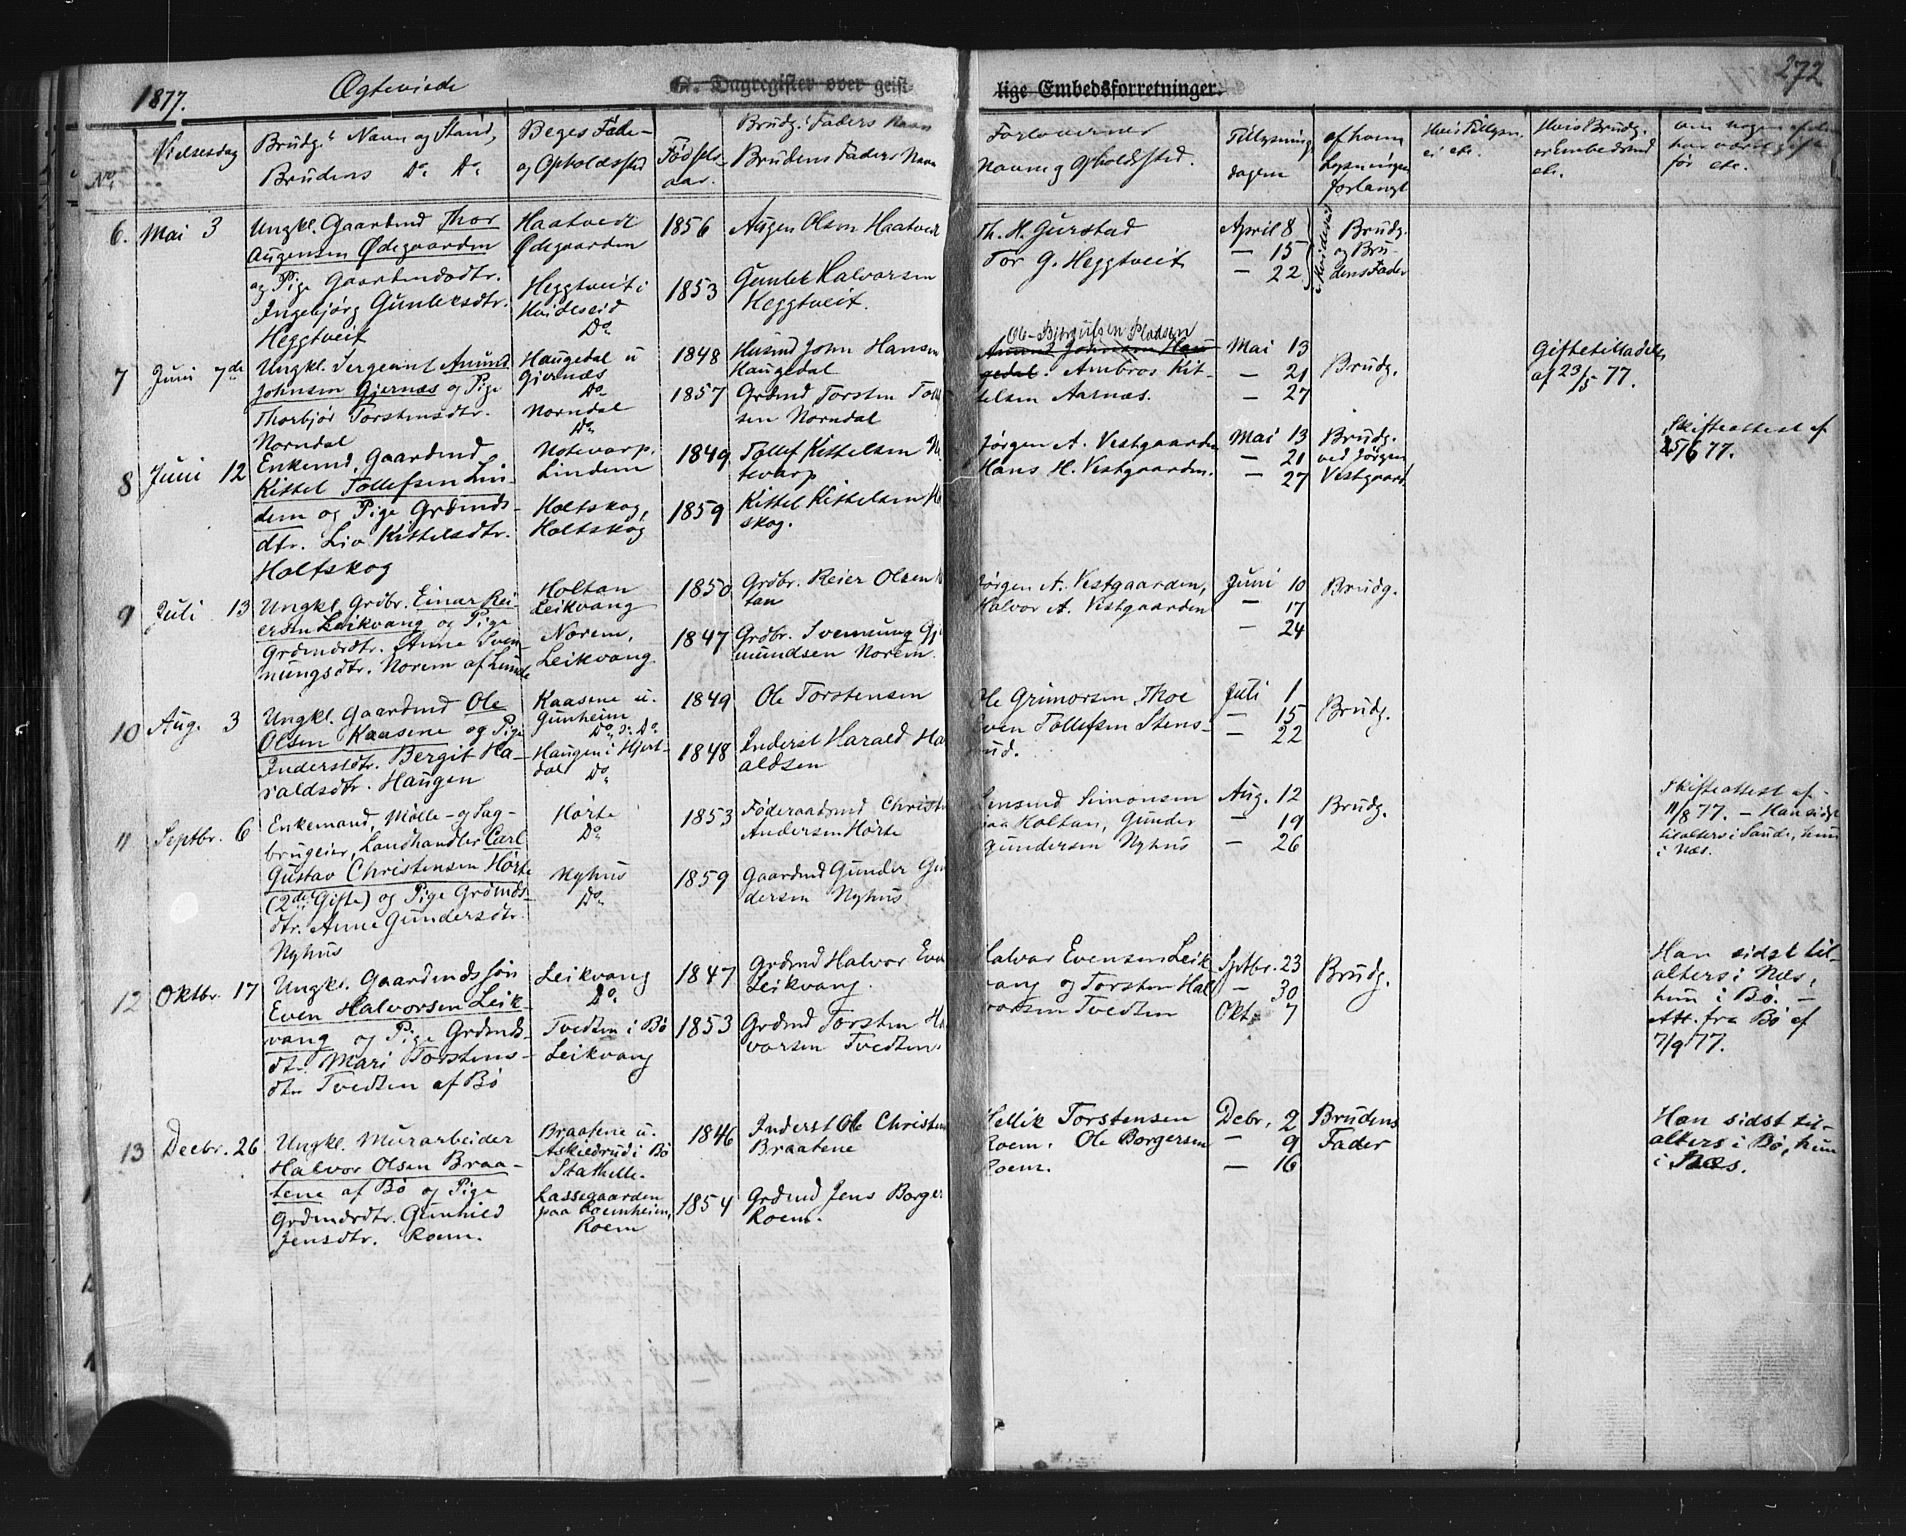 1877.
Ægteviede
G. Dagregister over geist-
lige Embedsforretninger.
272
No
Vielsesdag
Brudg.s Navn og Stand,
Brudens Do Do
Beges Føde-
og Opholdssted
Fødsels-
aar.
Brudg.s Faders Navn
Brudens Faders Navn
Forlovernes
Navn og Opholdsted.
Tillysnings
dagene
af hvem
Lysningen
forlangt
Hvis Tillysn.
ei etc.
Hvis Brudg.
er Embedsmd
etc.
om nogen af dem
har været gift
før etc.
6. Mai 3
Ungkl. Gaardmd Thor
Augensen Ødegaarden
og Pige Gaardmandsdtr.
Ingebjørg Gunleksdtr.
Heggtveit
Haatvedt
Ødegaarden
Heggtveit i
Hvideseid
Do
1856
1853
Augen Olsen Haatvedt
Gunlek Halvorsen
Heggtveit.
Th. H. Gurstad
Tor G. Heggtveit
April 8
— 15
— 22
i Hvideseid
Brudg.
og Bru-
dens Fader
7 Juni 7de
Ungkl. Sergeant Amund
Johnsen Gjernæs og Pige
Thorbjør Torstensdtr.
Norndal
Haugedal u
Gjernæs
Do
Norndal
Do
1848
1857
Husmd John Hansen
Haugedal
Grdmd Torsten
sen Norndal
Ole Bjørgulfsen Pladsen
Amund Johnsen Hau-
gedal. Ambros Kit-
telsen Aarnæs.
Mai 13
— 21
— 27
Brudg.
Giftetilladelse
af 23/5 77.
8 Juni 12
Enkemd, Gaardmd
Kittel Tollefsen Lin-
dem og Pige Grdmds-
dtr. Liv Kittelsdtr.
Holtskog
Notevarp.
Lindem
Holtskog,
Holtskog
1849
1859
Tollef Kittelsen
tevarp
Kittel Kittelsen
skog.
Jørgen A. Vestgaarden
Hans H. Vestgaarden.
Mai 13
— 21
— 27
Brudg.
ved Jørgen
Vestgaard
Skifteattest af
6 77.
9 Juli 13
Ungkl Grdbr. Einar Rei-
ersen Leikvang og Pige
Grdmdsdtr. Anne Sven-
nungsdtr. Norem af Lunde
Holtan
Leikvang
Norem,
Leikvang
1850
1847
Grdbr. Reier Olsen
tan
Grdbr. Svennung
mundsen Norem.
Jørgen A. Vestgaarden,
Halvor A. Vestgaarden
Juni 10
— 17
— 24
Brudg.
10 Aug. 3
Ungkl. Gaardmd Ole
Olsen Kaasene og Pige
Inderstdtr. Bergit Ha-
raldsdtr. Haugen
Kaasene u.
Gunheim
Do, Do
Haugen i Hjert-
dal Do
1849
1848
Ole Torstensen
Inderst Harald Har
aldsen
Ole Grimorsen Thoe
Even Tollefsen Stens-
rud.
Juli 1
— 15
— 22
Brudg.
11 Septbr. 6
Enkemand, Mølle- og Sag-
brugeier, Landhandler Carl
Gustav Christensen Hørte
(2de Gifte) og Pige Grdmds-
dtr. Anne Gundersdtr.
Nyhus
Hørte
Do
Nyhus
Do
1853
1859
Føderaadmd Christen
Andersen Hørte
Gaardmd Gunder Gun
dersen Nyhus
Simonsen
paa Holtan, Gunder
Gundersen Nyhus
Aug. 12
— 19
— 26
Brudg.
Skifteattest af
11/8 77. — Han sidst
tilalters i Saude, hun
i Næs.
12 Oktbr. 17
Ungkl. Gaardmdssøn
Even Halvorsen Leik-
vang og Pige Grdmds-
dtr. Mari Torstens-
dtr Tvedten af Bø
Leikvang
Do
Tvedten i Bø
Leikvang
1847
1853
Grdmd Halvor Even
Leikvang.
Grdmd Torsten Hal
vorsen Tvedten
Halvor Evensen Leik
vang og Torsten Hal
vorsen Tvedten
Sptbr. 23
— 30
Okt. 7
Brudg.
Han sidst til-
alters i Næs,
hun i Bø. —
Att. fra Bø af
7/9 77.
13 Decbr. 26
Ungkl. Murarbeider
Halvor Olsen Braa-
tene af Bø og Pige
Grdmdsdtr. Gunhild
Jensdtr. Roem.
Braatene u.
Askildrud i Bø
Stathelle.
Lassegaarden
paa Roemheim,
Roem
1846
1854
Inderst Ole Christen
Braatene
Grdmd Jens Borger
Roem.
Hellik Torstensen
Roem. Ole Borgersen
Roem.
Debr. 2
— 9
— 16
Brudens
Fader
Han sidst til-
alters i Bø, hun
i Næs.